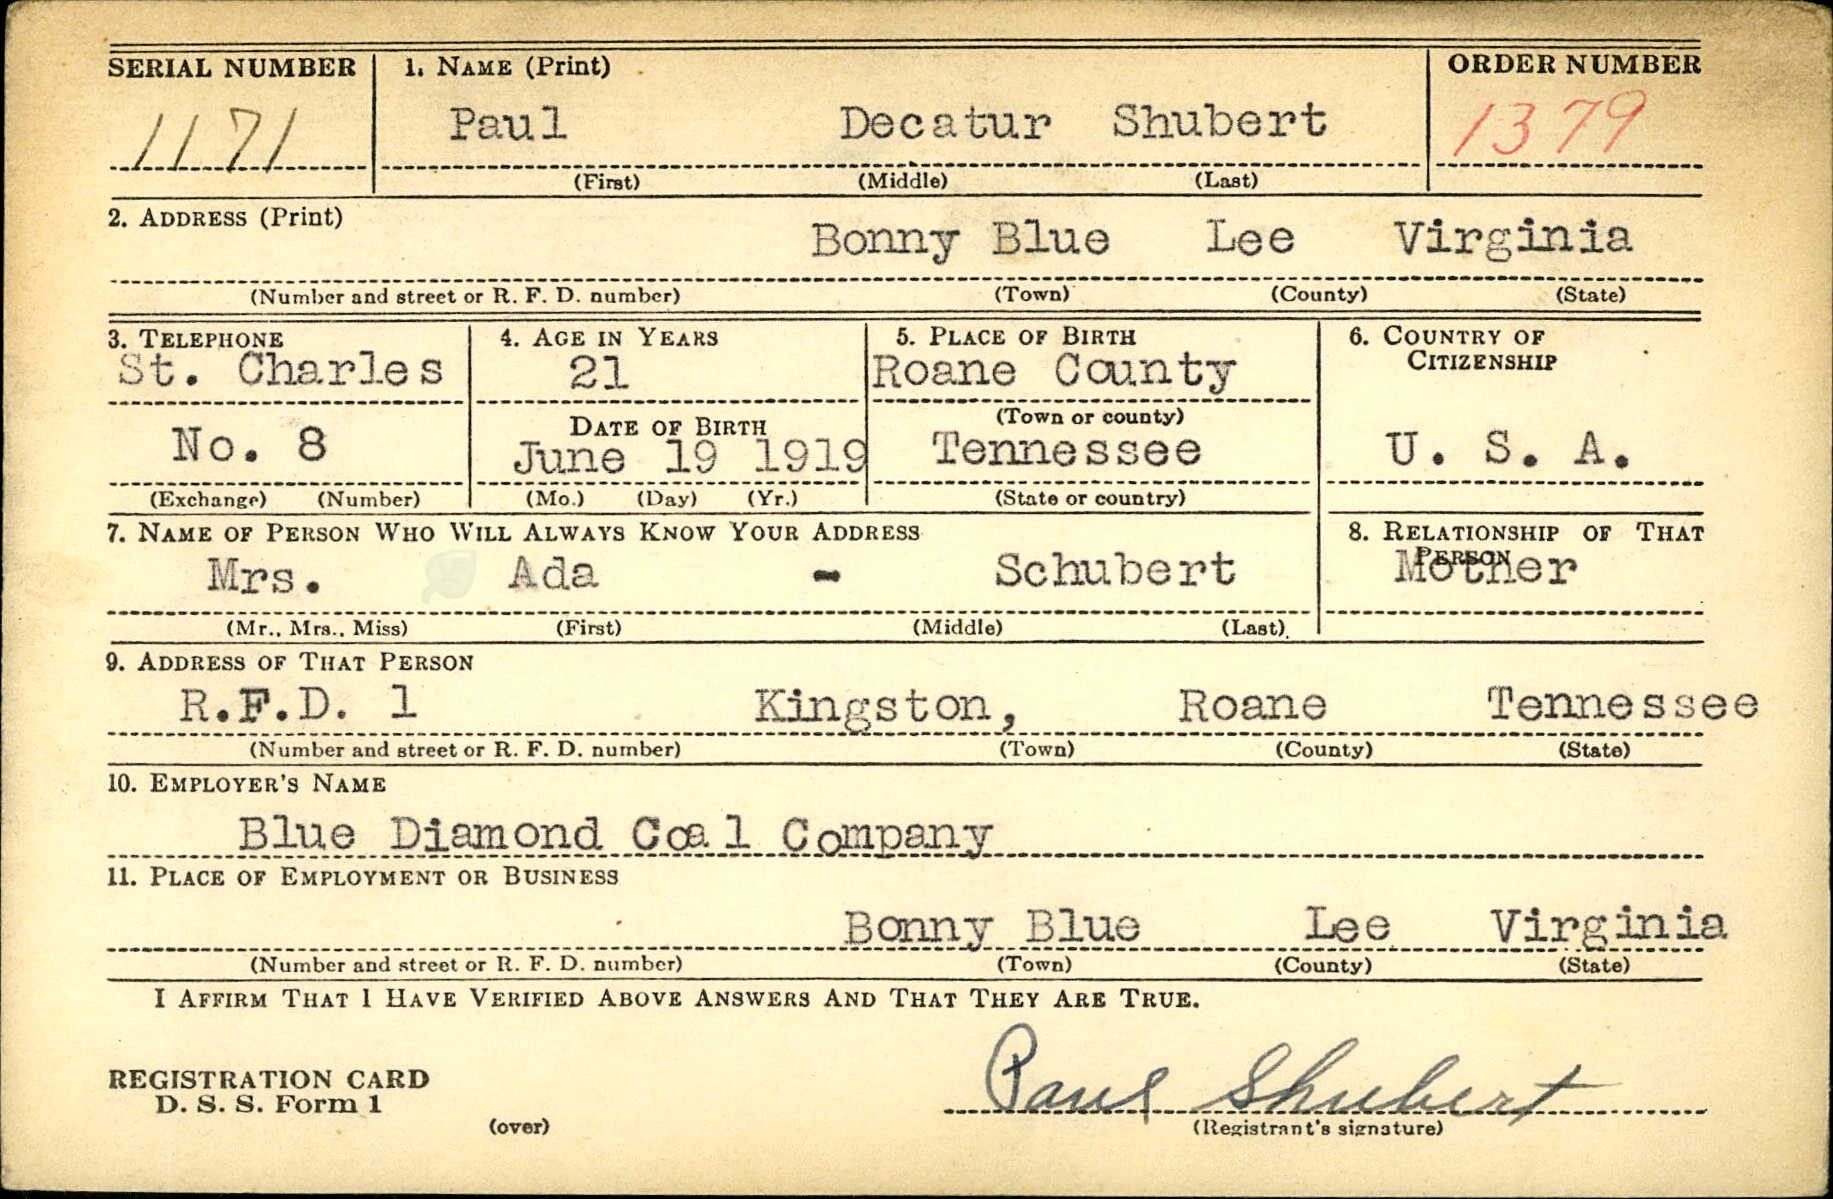 SERIAL NUMBER 1. NAME (Print) ORDER NUMBER
1171 Paul Decatur Shubert 1379
(First) (Middle) (Last)
2. ADDRESS (Print)
Bonny Blue Lee Virginia
(Number and street or R. F. D. number) (Town) (County) (State)
3. TELEPHONE 4. AGE IN YEARS 5. PLACE OF BIRTH 6. COUNTRY OF CITIZENSHIP
St. Charles 21 Roane County
(Town or county)
DATE OF BIRTH
No. 8 June 19 1919 Tennessee U. S. A.
(Exchange) (Number) (Mo.) (Day) (Yr.) (State or country)
7. NAME OF PERSON WHO WILL ALWAYS KNOW YOUR ADDRESS 8. RELATIONSHIP OF THAT PERSON
Mrs. Ada - Schubert Mother
(Mr., Mrs., Miss) (First) (Middle) (Last)
9. ADDRESS OF THAT PERSON
R.F.D. 1 Kingston, Roane Tennessee
(Number and street or R. F. D. number) (Town) (County) (State)
10. EMPLOYER'S NAME
Blue Diamond Coal Company
11. PLACE OF EMPLOYMENT OR BUSINESS
Bonny Blue Lee Virginia
(Number and street or R. F. D. number) (Town) (County) (State)
I AFFIRM THAT I HAVE VERIFIED ABOVE ANSWERS AND THAT THEY ARE TRUE.
REGISTRATION CARD
D. S. S. Form 1
Paul Shubert
(over) (Registrant's signature)